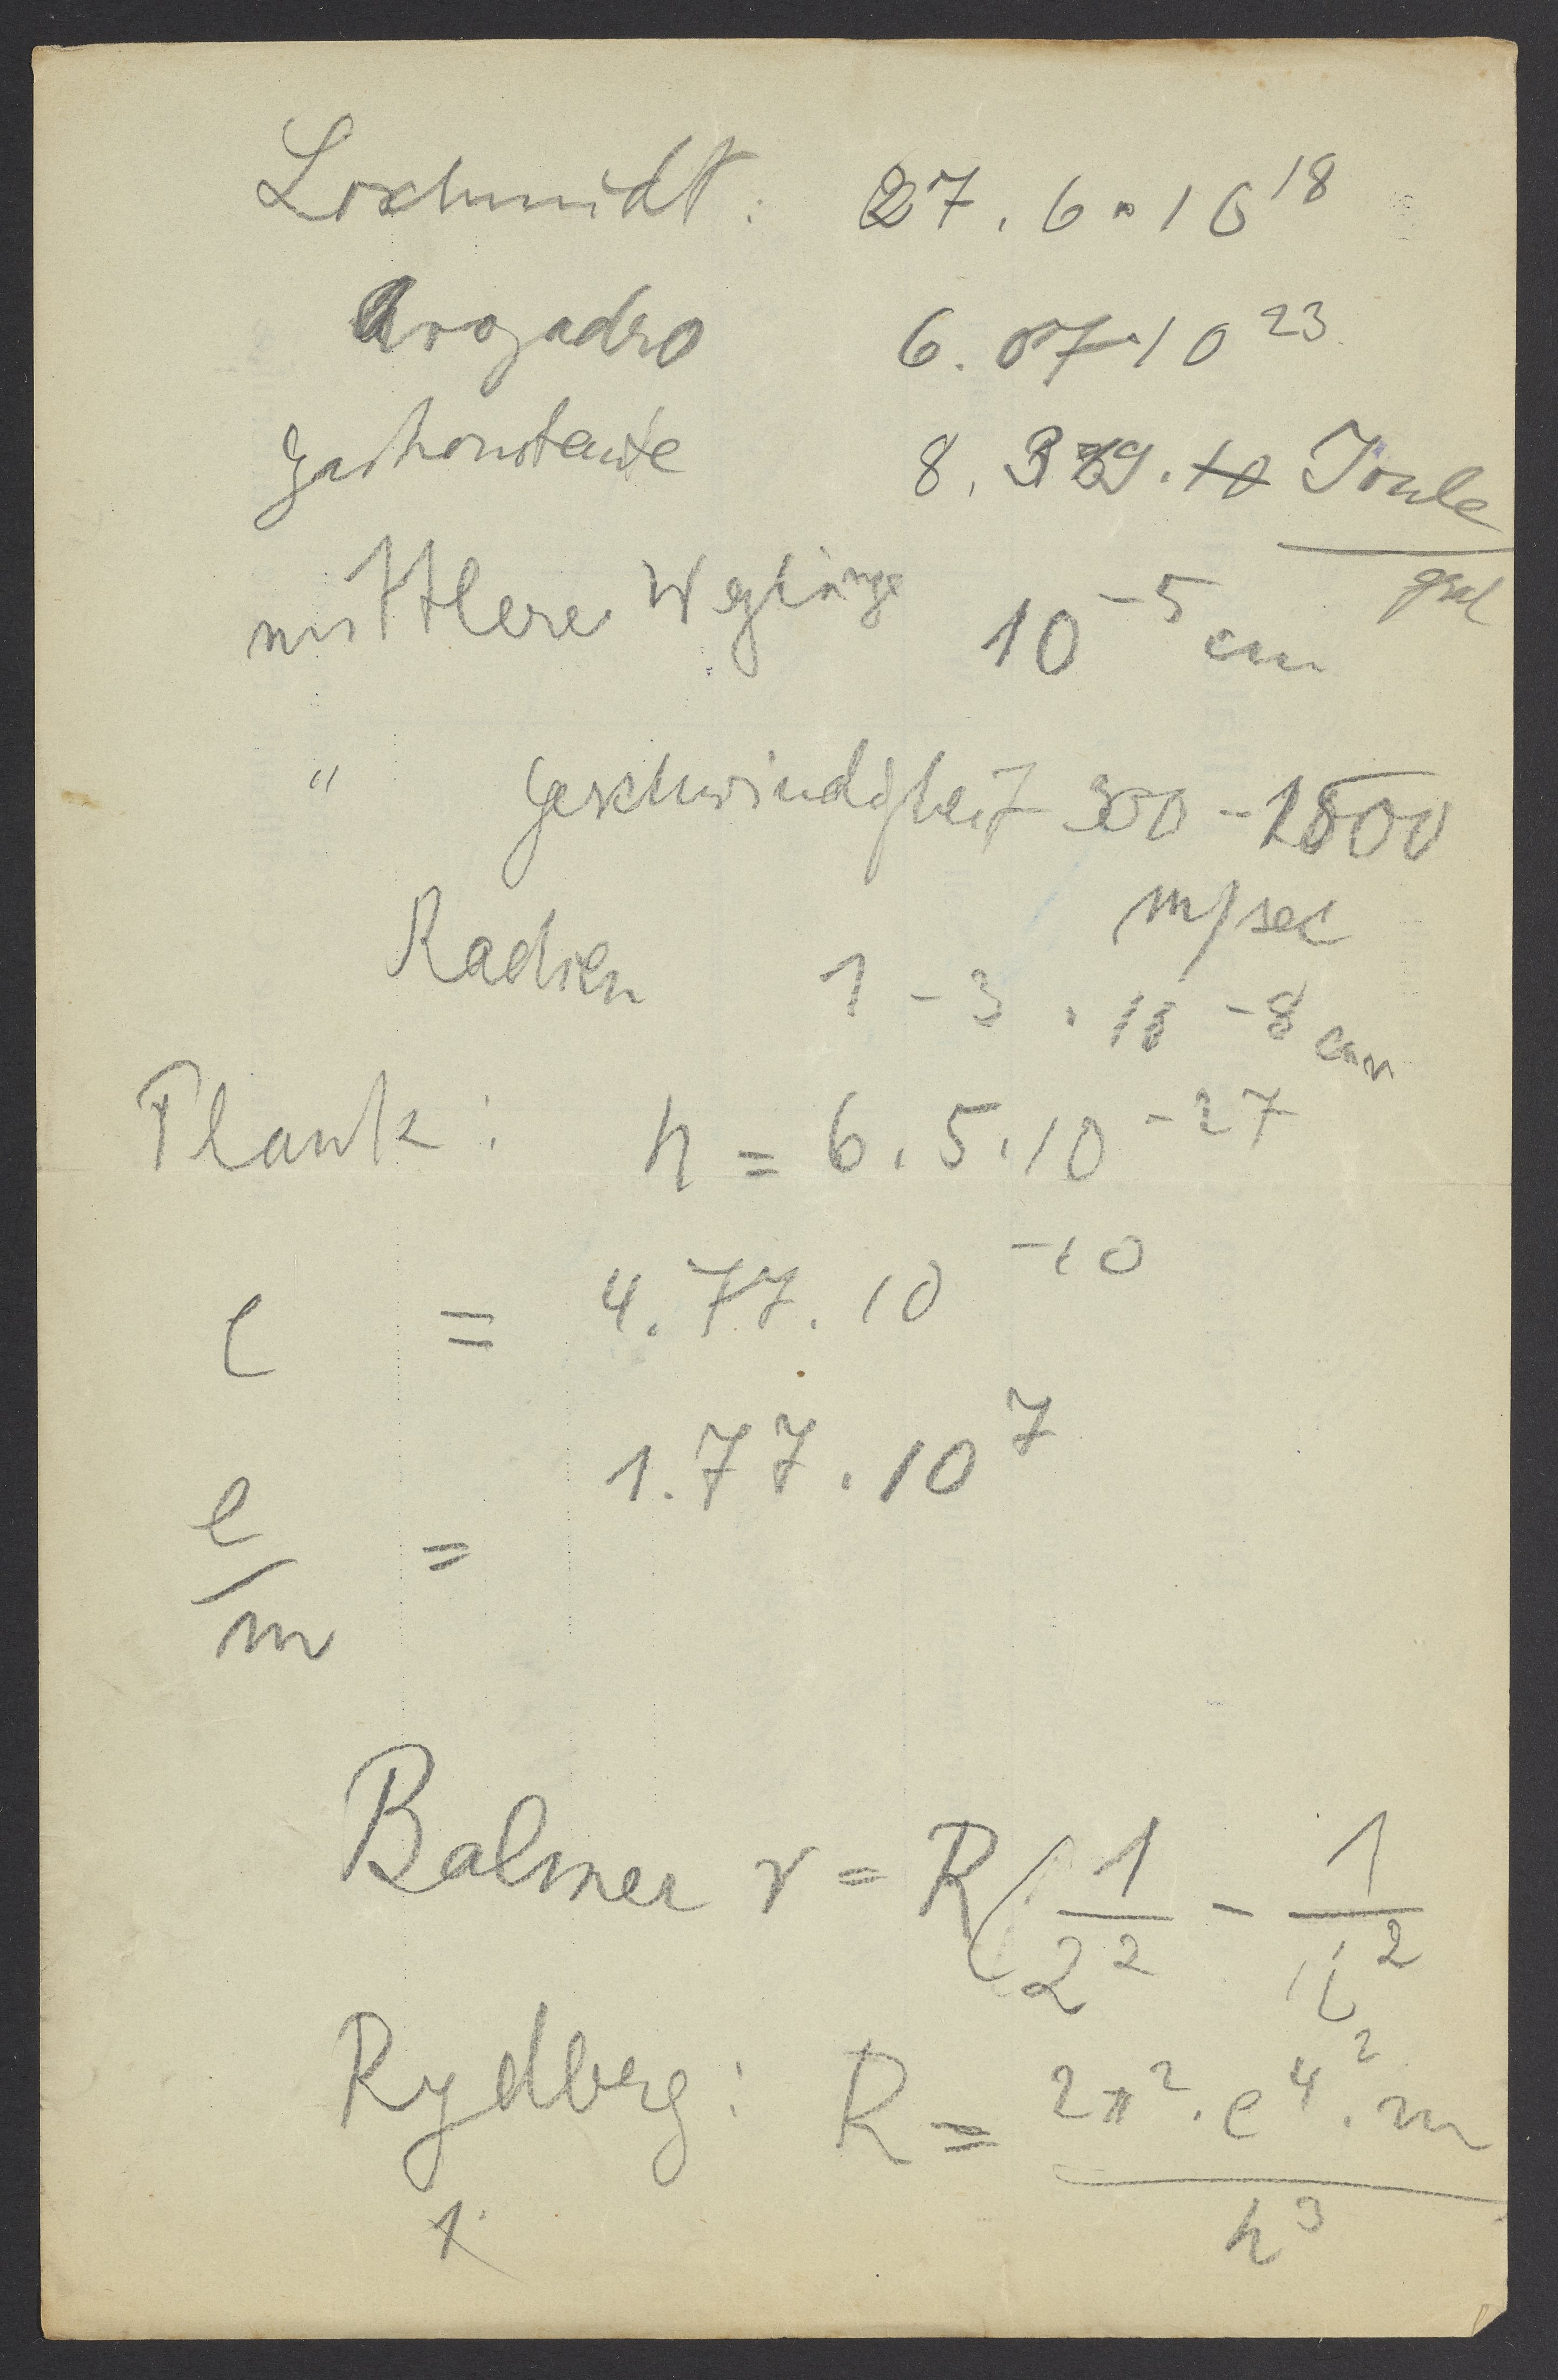 Loschmidt: 27.6·10^18
Avogadro 6.07·10^23
Gaskonstante 8.319. Joule
grd
mittlere Weglänge 10^-5 cm
" Geschwindigkeit 300-1800
m/sec
Radien 1-3.10^-8 cm
Plank: h = 6.5.10^-27
e = 4.77.10^-10
1.77.10^7
e/m =
Balmer ν = R(1/2² - 1/i²
Rydberg: R = 2π².e⁴.m / h³